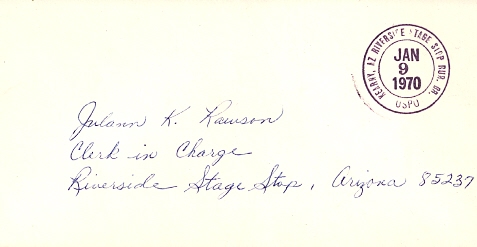 KEARNY, AZ RIVERSIDE STAGE STOP RUR. BR.
JAN
9
1970
USPO
Julann K. Rawson
Clerk in Charge
Riverside Stage Stop, Arizona 85237